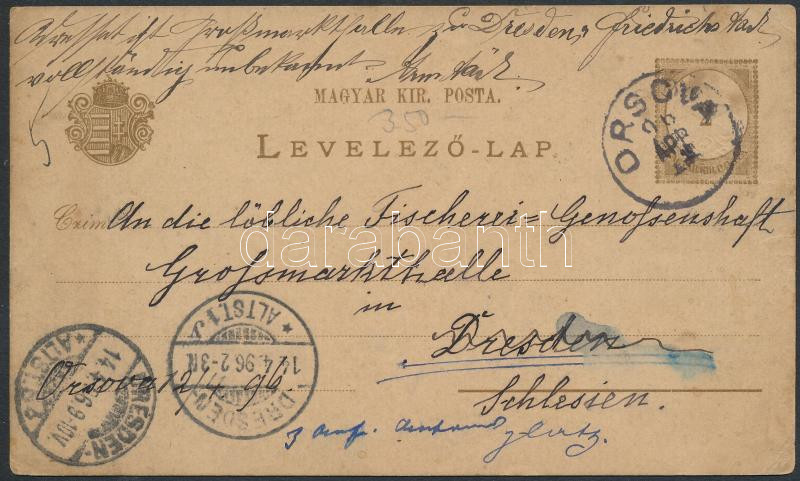 Adressat ist Großmarkthalle zu Dresden, Friedrichstadt
vollständig unbekannt.
MAGYAR KIR. POSTA.
350
LEVELEZŐ-LAP.
ORSOVA
96
APR
Czim
An die löbliche Fischerei=Genossenshaft
Grossmarkthalle
in
Dresden
Schlesien.
Orsova 12/4 96.
DRESDEN
ALTST. 1
14.4.96 2-3N.
DRESDEN-
ALTST.
14.4.96 9-10V
darabanth